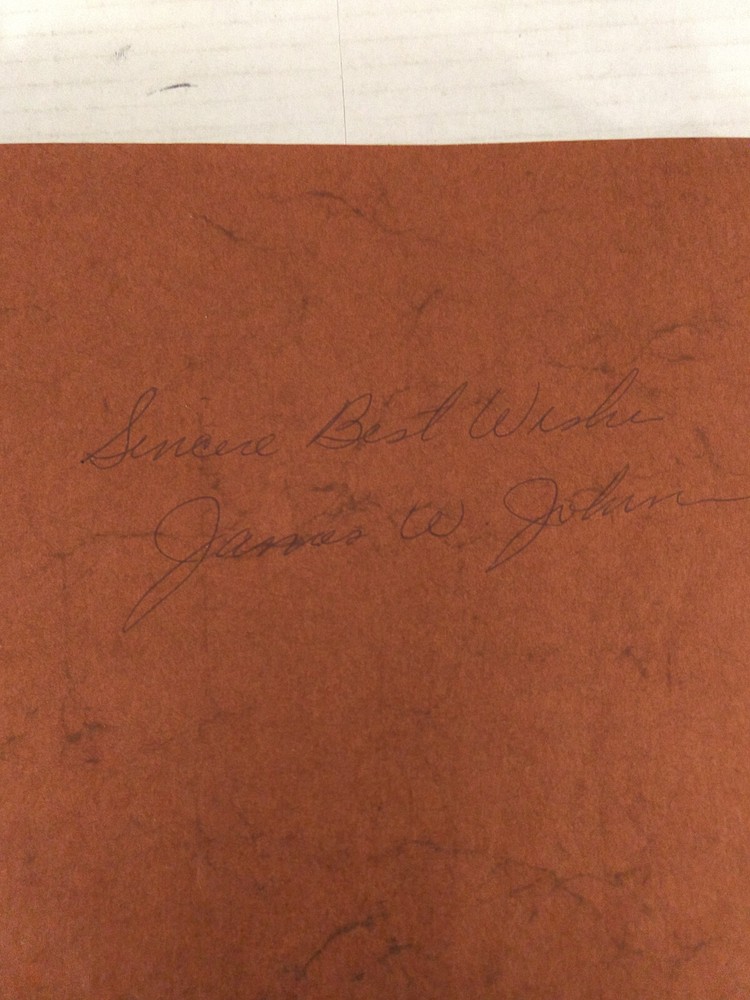 Sincere Best Wishes
James W. Johnn